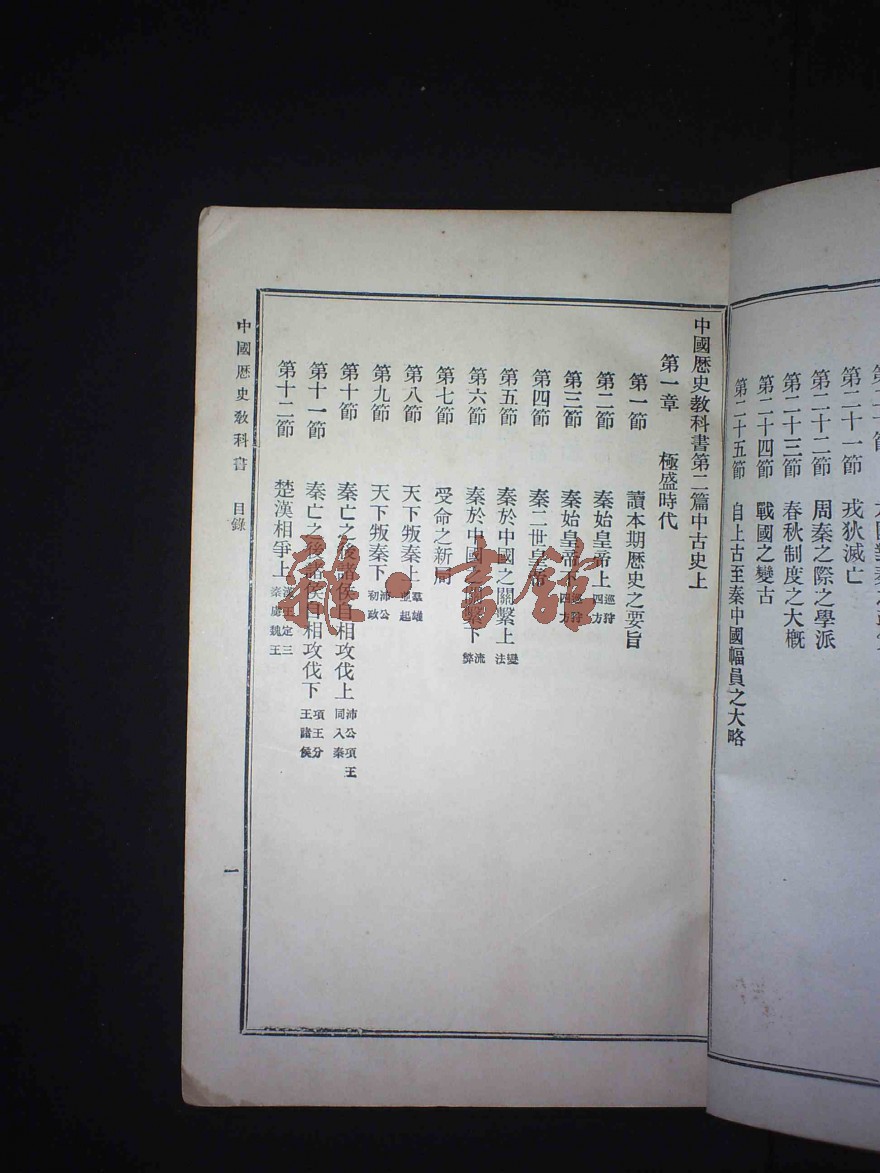 第二十一節 戎狄滅亡
第二十二節 周秦之際之學派
第二十三節 春秋制度之大概
第二十四節 戰國之變古
第二十五節 自上古至秦中國幅員之大略
中國歷史教科書第二篇中古史上
第一章 極盛時代
第一節 讀本期歷史之要旨
第二節 秦始皇帝上 巡狩四方
第三節 秦始皇帝下 巡狩四方
第四節 秦二世皇帝
第五節 秦於中國之關繫上 變法
第六節 秦於中國之關繫下 流弊
第七節 受命之新局
第八節 天下叛秦上 羣雄並起
第九節 天下叛秦下 沛公初政
第十節 秦亡之後諸侯自相攻伐上 沛公項王同入秦
第十一節 秦亡之後諸侯自相攻伐下 項王分王諸侯
第十二節 楚漢相爭上 漢王定三秦虜魏王
中國歷史教科書 目錄
一
雜·書館